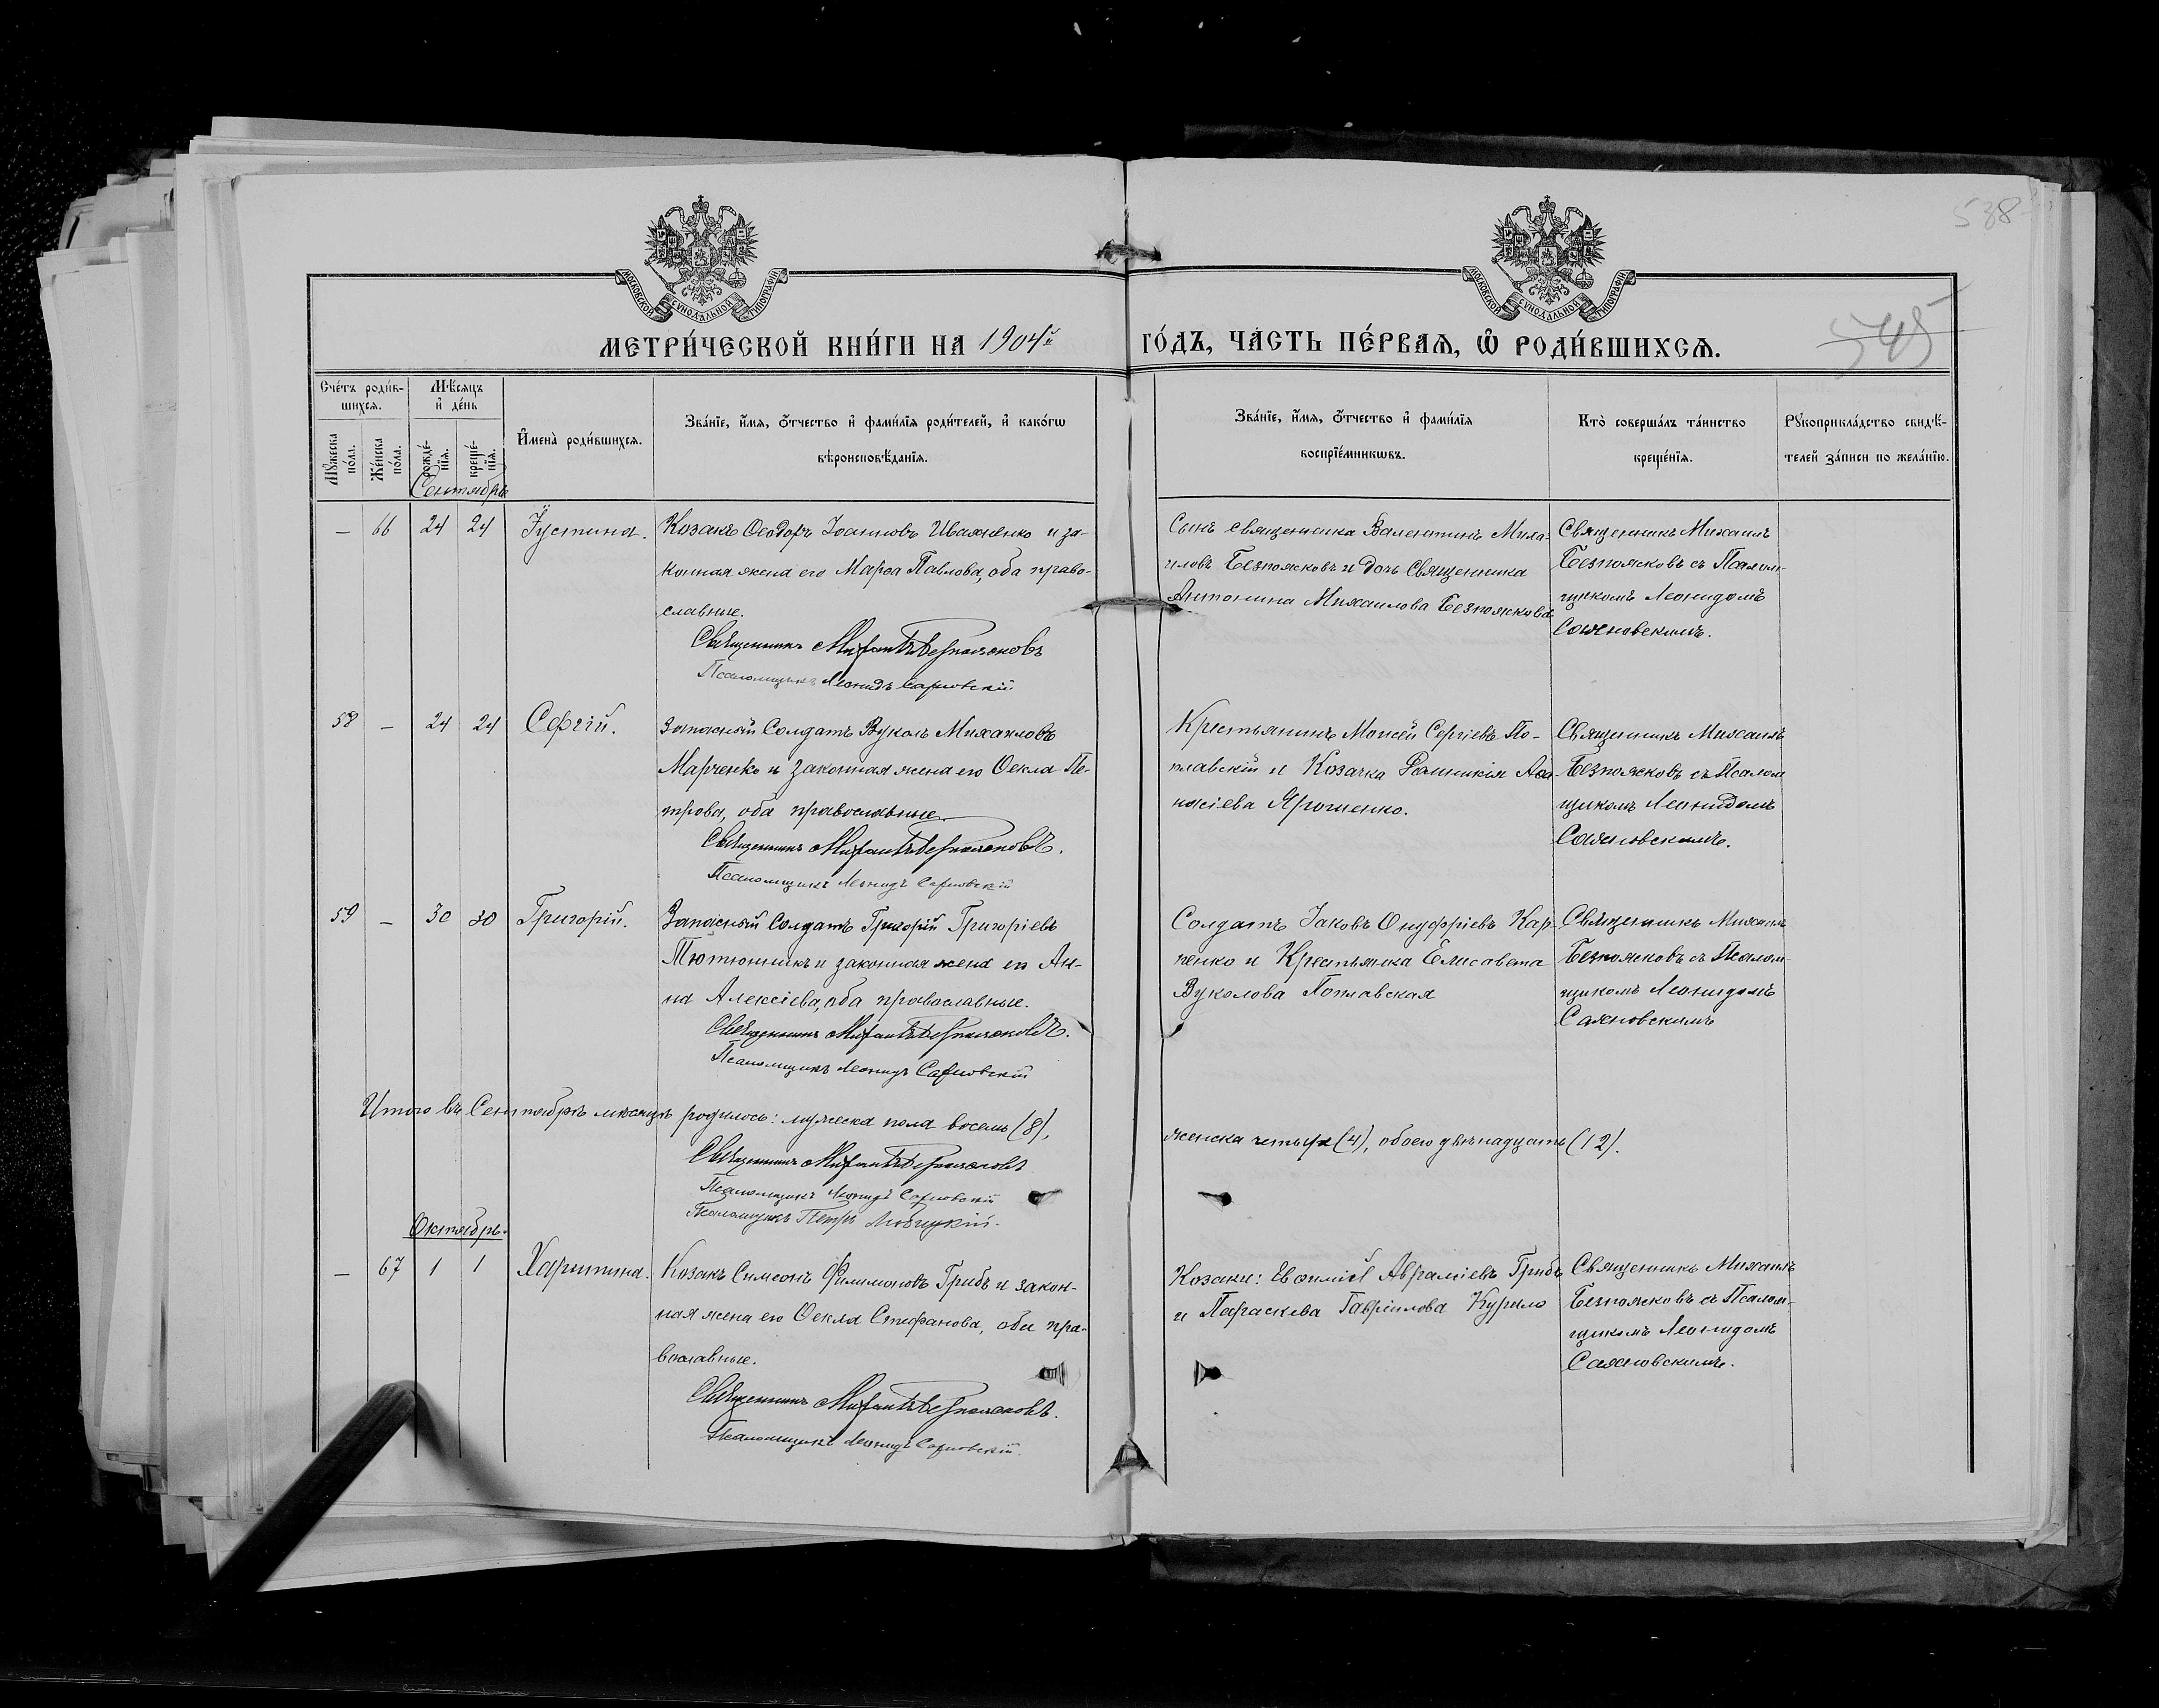 538
545
МОСКОВСКОЙ СѴНОДАЛЬНОЙ ТИПОГРАФІИ
МОСКОВСКОЙ СѴНОДАЛЬНОЙ ТИПОГРАФІИ
МЕТРИ́ЧЕСКОЙ КНИ́ГИ НА 1904й ГО́ДЪ, ЧА́СТЬ ПЕ́РВАѦ, Ѡ҆ РОДИ́ВШИХСѦ.
Сче́тъ роди́в-
шихсѧ.
Мꙋ́жеска
по́ла.
Же́нска
по́ла.
Мѣ́сѧцъ
и҆ де́нь
рожде́-
нїѧ.
креще́-
нїѧ.
И҆мена̀ роди́вшихсѧ.
Зва́нїе, и҆́мѧ, ѻ҆́тчество и҆ фами́лїѧ роди́телей, и҆ како́гѡ
вѣроисповѣ́данїѧ.
Зва́нїе, и҆́мѧ, ѻ҆́тчество и҆ фами́лїѧ
воспрїе́мникѡвъ.
Кто̀ соверша́лъ та́инство
креще́нїѧ.
Рꙋкоприкла́дство свидѣ́-
телей за́писи по жела́нїю.
Сентябрь
— 66 24 24 Іустина.
Козакъ Ѳеодоръ Іоанновъ Иваненко и за-
конная жена его Марѳа Павлова, оба право-
славные.
Священникъ Михаилъ Безпоясковъ
Псаломщикъ Леонидъ Саяновскій
Сынъ священника Валентинъ Миха-
иловъ Безпоясковъ и дочь Священника
Антонина Михаилова Безпояскова
Священникъ Михаилъ
Безпоясковъ съ Псалом-
щикомъ Леонидомъ
Саяновскимъ.
58 — 24 24 Сергій.
Запасный Солдатъ Вуколъ Михаиловъ
Марченко и законная жена его Ѳекла Пе-
трова, оба православные.
Священникъ Михаилъ Безпоясковъ.
Псаломщикъ Леонидъ Саяновскій
Крестьянинъ Моисей Сергіевъ По-
плавскій и Козачка
Ярошенко.
Священникъ Михаилъ
Безпоясковъ съ Псалом
щикомъ Леонидомъ
Саяновскимъ.
59 — 30 30 Григорій.
Запасный Солдатъ Григорій Григоріевъ
Тютюнникъ и законная жена его Ан-
на Алексіева, оба православные.
Священникъ Михаилъ Безпоясковъ.
Псаломщикъ Леонидъ Саяновскій
Солдатъ Іаковъ Онуфріевъ Кар-
пенко и Крестьянка Елисавета
Вуколова Поплавская
Священникъ Михаилъ
Безпоясковъ съ Псалом-
щикомъ Леонидомъ
Саяновскимъ
Итого въ Сентябрѣ мѣсяцѣ родилось: мужеска пола восемь (8), женска четыре (4), обоего двѣнадцать (12).
Священникъ Михаилъ Безпоясковъ
Псаломщикъ Леонидъ Саяновскій
Псаломщикъ Петръ
Октябрь.
— 67 1 1 Харитина.
Козакъ Симеонъ Филимоновъ Грибъ и закон-
ная жена его Ѳекла Стефанова, оба пра-
вославные.
Священникъ Михаилъ Безпоясковъ.
Псаломщикъ Леонидъ Саяновскій
Козаки: Евѳимій Авраміевъ Грибъ
и Параскева Гавріилова Курило
Священникъ Михаилъ
Безпоясковъ съ Псалом-
щикомъ Леонидомъ
Саяновскимъ.